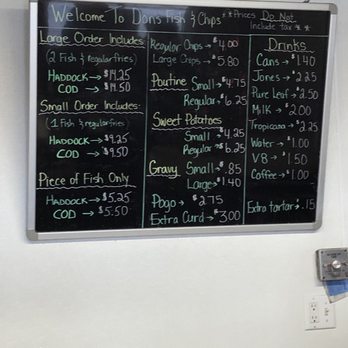 Welcome To Dons Fish & Chips
**Prices Do Not
Include tax**
Large Order Includes
(2 Fish & regular fries)
HADDOCK → $14.25
COD → $14.50
Small Order Includes:
(1 Fish & regular fries)
HADDOCK → $9.25
COD → $9.50
Piece of Fish Only
HADDOCK → $5.25
COD → $5.50
Regular Chips → $4.00
Large Chips → $5.80
Poutine Small → $4.75
Regular → $6.25
Sweet Potatoes
Small → $4.25
Regular → $6.25
Gravy Small → $.85
Large → $1.40
Pogo → $2.75
Extra Curd → $3.00
Drinks
Cans → $1.40
Jones → $2.25
Pure Leaf → $2.50
Milk → $2.00
Tropicana → $2.25
Water → $1.00
V8 → $1.50
Coffee → $1.00
Extra tartar → $.15